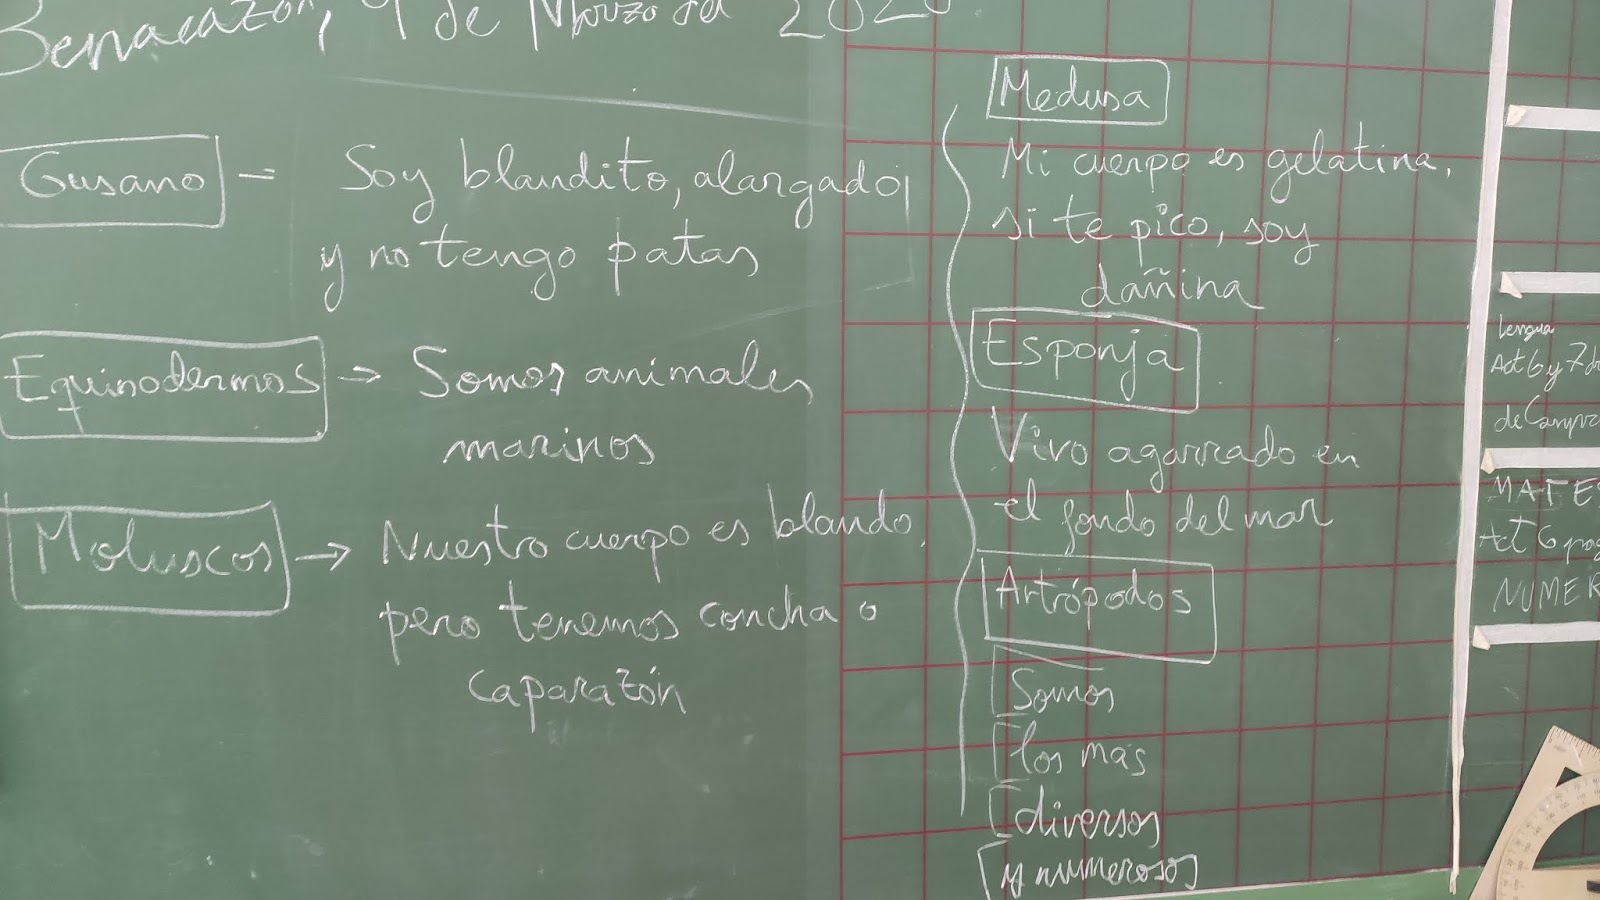 Benacazón, 9 de Marzo de 2020.
Gusano = Soy blandito, alargado,
y no tengo patas
Equinodermos → Somos animales
marinos
Moluscos → Nuestro cuerpo es blando,
pero tenemos concha o
caparazón
Medusa
Mi cuerpo es gelatina,
si te pico, soy
dañina
Esponja
Vivo agarrado en
el fondo del mar
Artrópodos
Somos
los más
diversos
y numerosos
Lengua
Act 6 y 7 de
de
MATES
Act 6 pag
NUMER